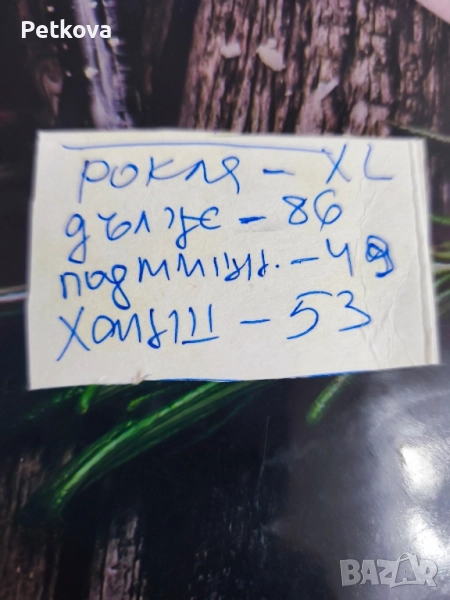 Petkova
РОКЛЯ - XL
дълж - 86
подмиш. - 49
Ханш - 53
BAZAR